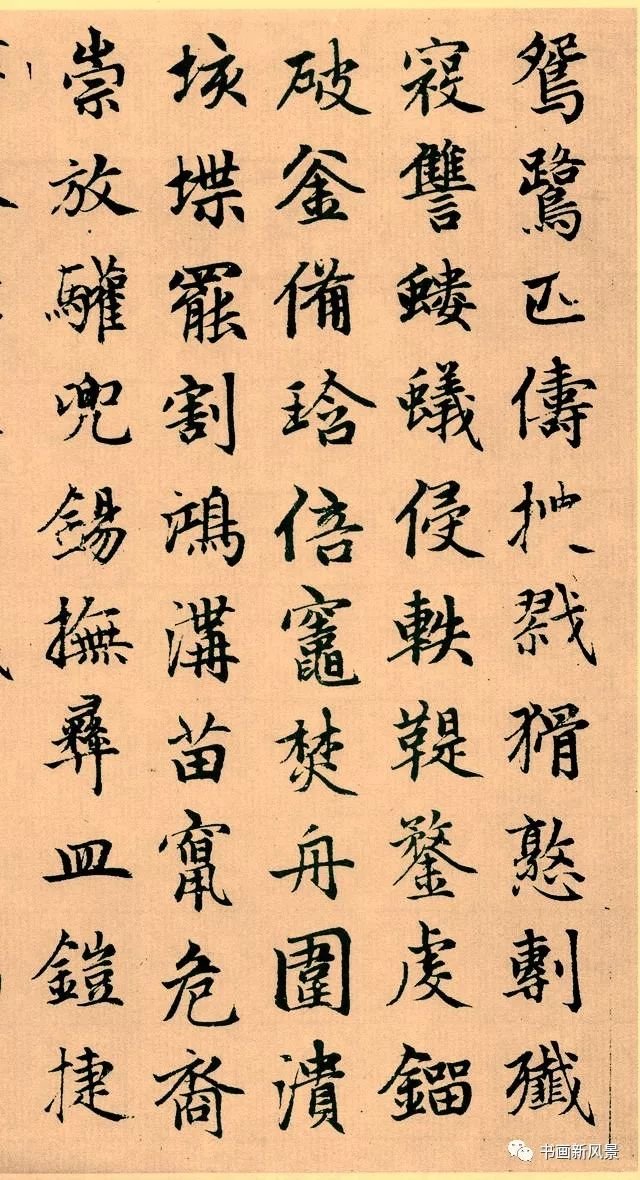 鴛鷺匹儔抻戮猾憝剸殲
寇讐螻蟻侵軼鞮鍪虔鎦
破釜備琀倍竈焚舟圍潰
垓堞罷割鴻溝苗竄危裔
崇放驩兜錫撫彝皿鎧捷
书画新风景